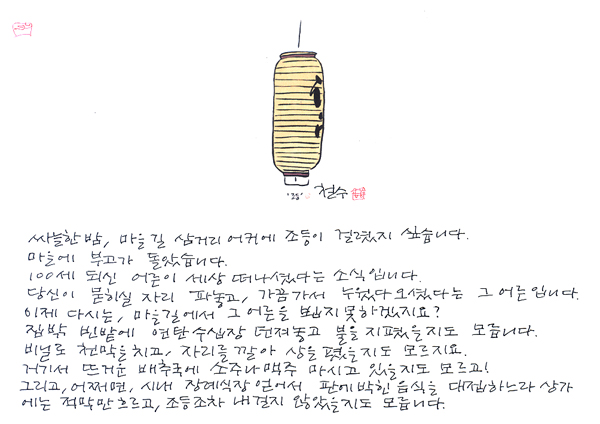 철수
싸늘한 밤, 마을 길 삼거리 어귀에 조등이 걸렸지 싶습니다.
마을에 부고가 돌았습니다.
100세 되신 어른이 세상 떠나셨다는 소식입니다.
당신이 묻히실 자리 파놓고, 가끔 가서 누웠다 오셨다는 그 어른입니다.
이제 다시는, 마을길에서 그 어른을 뵙지 못하겠지요?
집 밖 빈밭에 연탄 수십장 던져놓고 불을 지폈을지도 모릅니다.
비닐로 천막을 치고, 자리를 깔아 상을 폈을지도 모르지요.
거기서 뜨거운 배추국에 소주나 맥주 마시고 있을지도 모르고!
그리고, 어쩌면, 시내 장례식장 얻어서 판에 박힌 음식을 대접하느라 상가
에는 적막만 흐르고, 조등조차 내걸지 않았을지도 모릅니다.